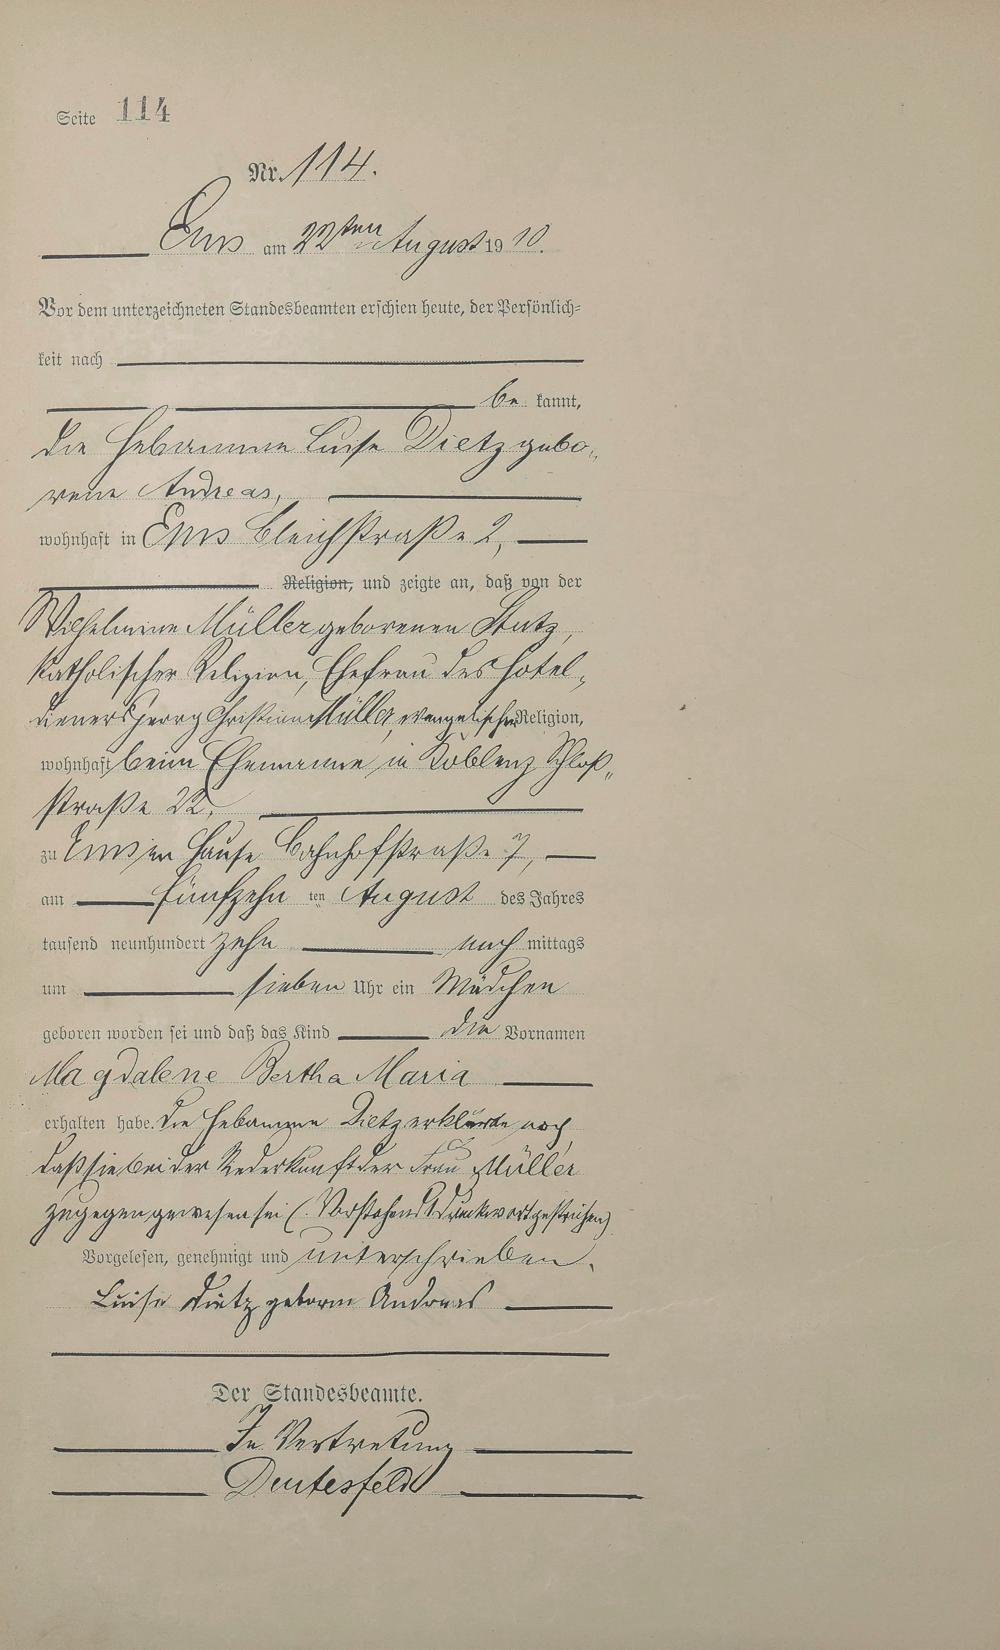 Seite 114
Nr. 114.
Ems am 22ten August 1910.
Vor dem unterzeichneten Standesbeamten erschien heute, der Persönlich-
keit nach
be kannt,
die Hebamme Luise Dietz gebo-
rene Andreas,
wohnhaft in Ems Bleichstraße 2,
Religion, und zeigte an, daß von der
Wilhelmine Müller geborenen Stutz,
katholischer Religion, Ehefrau des Hotel-
dieners Georg Christian Müller, evangelischer Religion,
wohnhaft beim Ehemanne in Koblenz Schloß-
straße 22,
zu Ems im Hause Bahnhofstraße 7,
am fünfzehn ten August des Jahres
tausend neunhundert zehn nach mittags
um sieben Uhr ein Mädchen
geboren worden sei und daß das Kind die Vornamen
Magdalene Bertha Maria
erhalten habe. Die Hebamme Dietz erklärte noch,
daß sie bei der Niederkunft der Frau Müller
zugegen gewesen sei (Vorstehend 1 Druckwort gestrichen)
Vorgelesen, genehmigt und unterschrieben.
Luise Dietz geborne Andreas
Der Standesbeamte.
In Vertretung
Deutesfeld